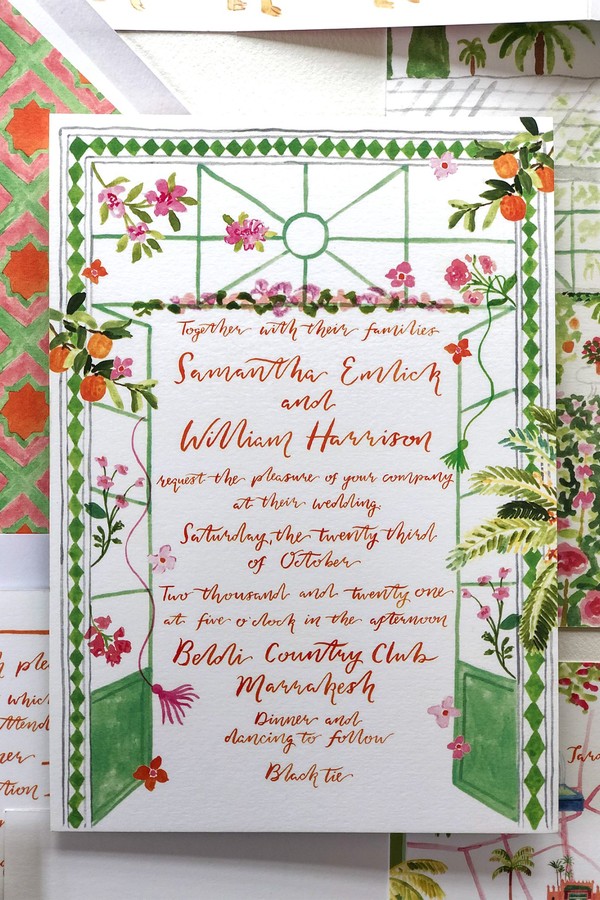 Together with their families
Samantha Emlick
and
William Harrison
request the pleasure of your company
at their wedding.
Saturday, the twenty third
of October
Two thousand and twenty one
at five o'clock in the afternoon
Beldi Country Club
Marrakesh
Dinner and
dancing to follow
Black tie
which